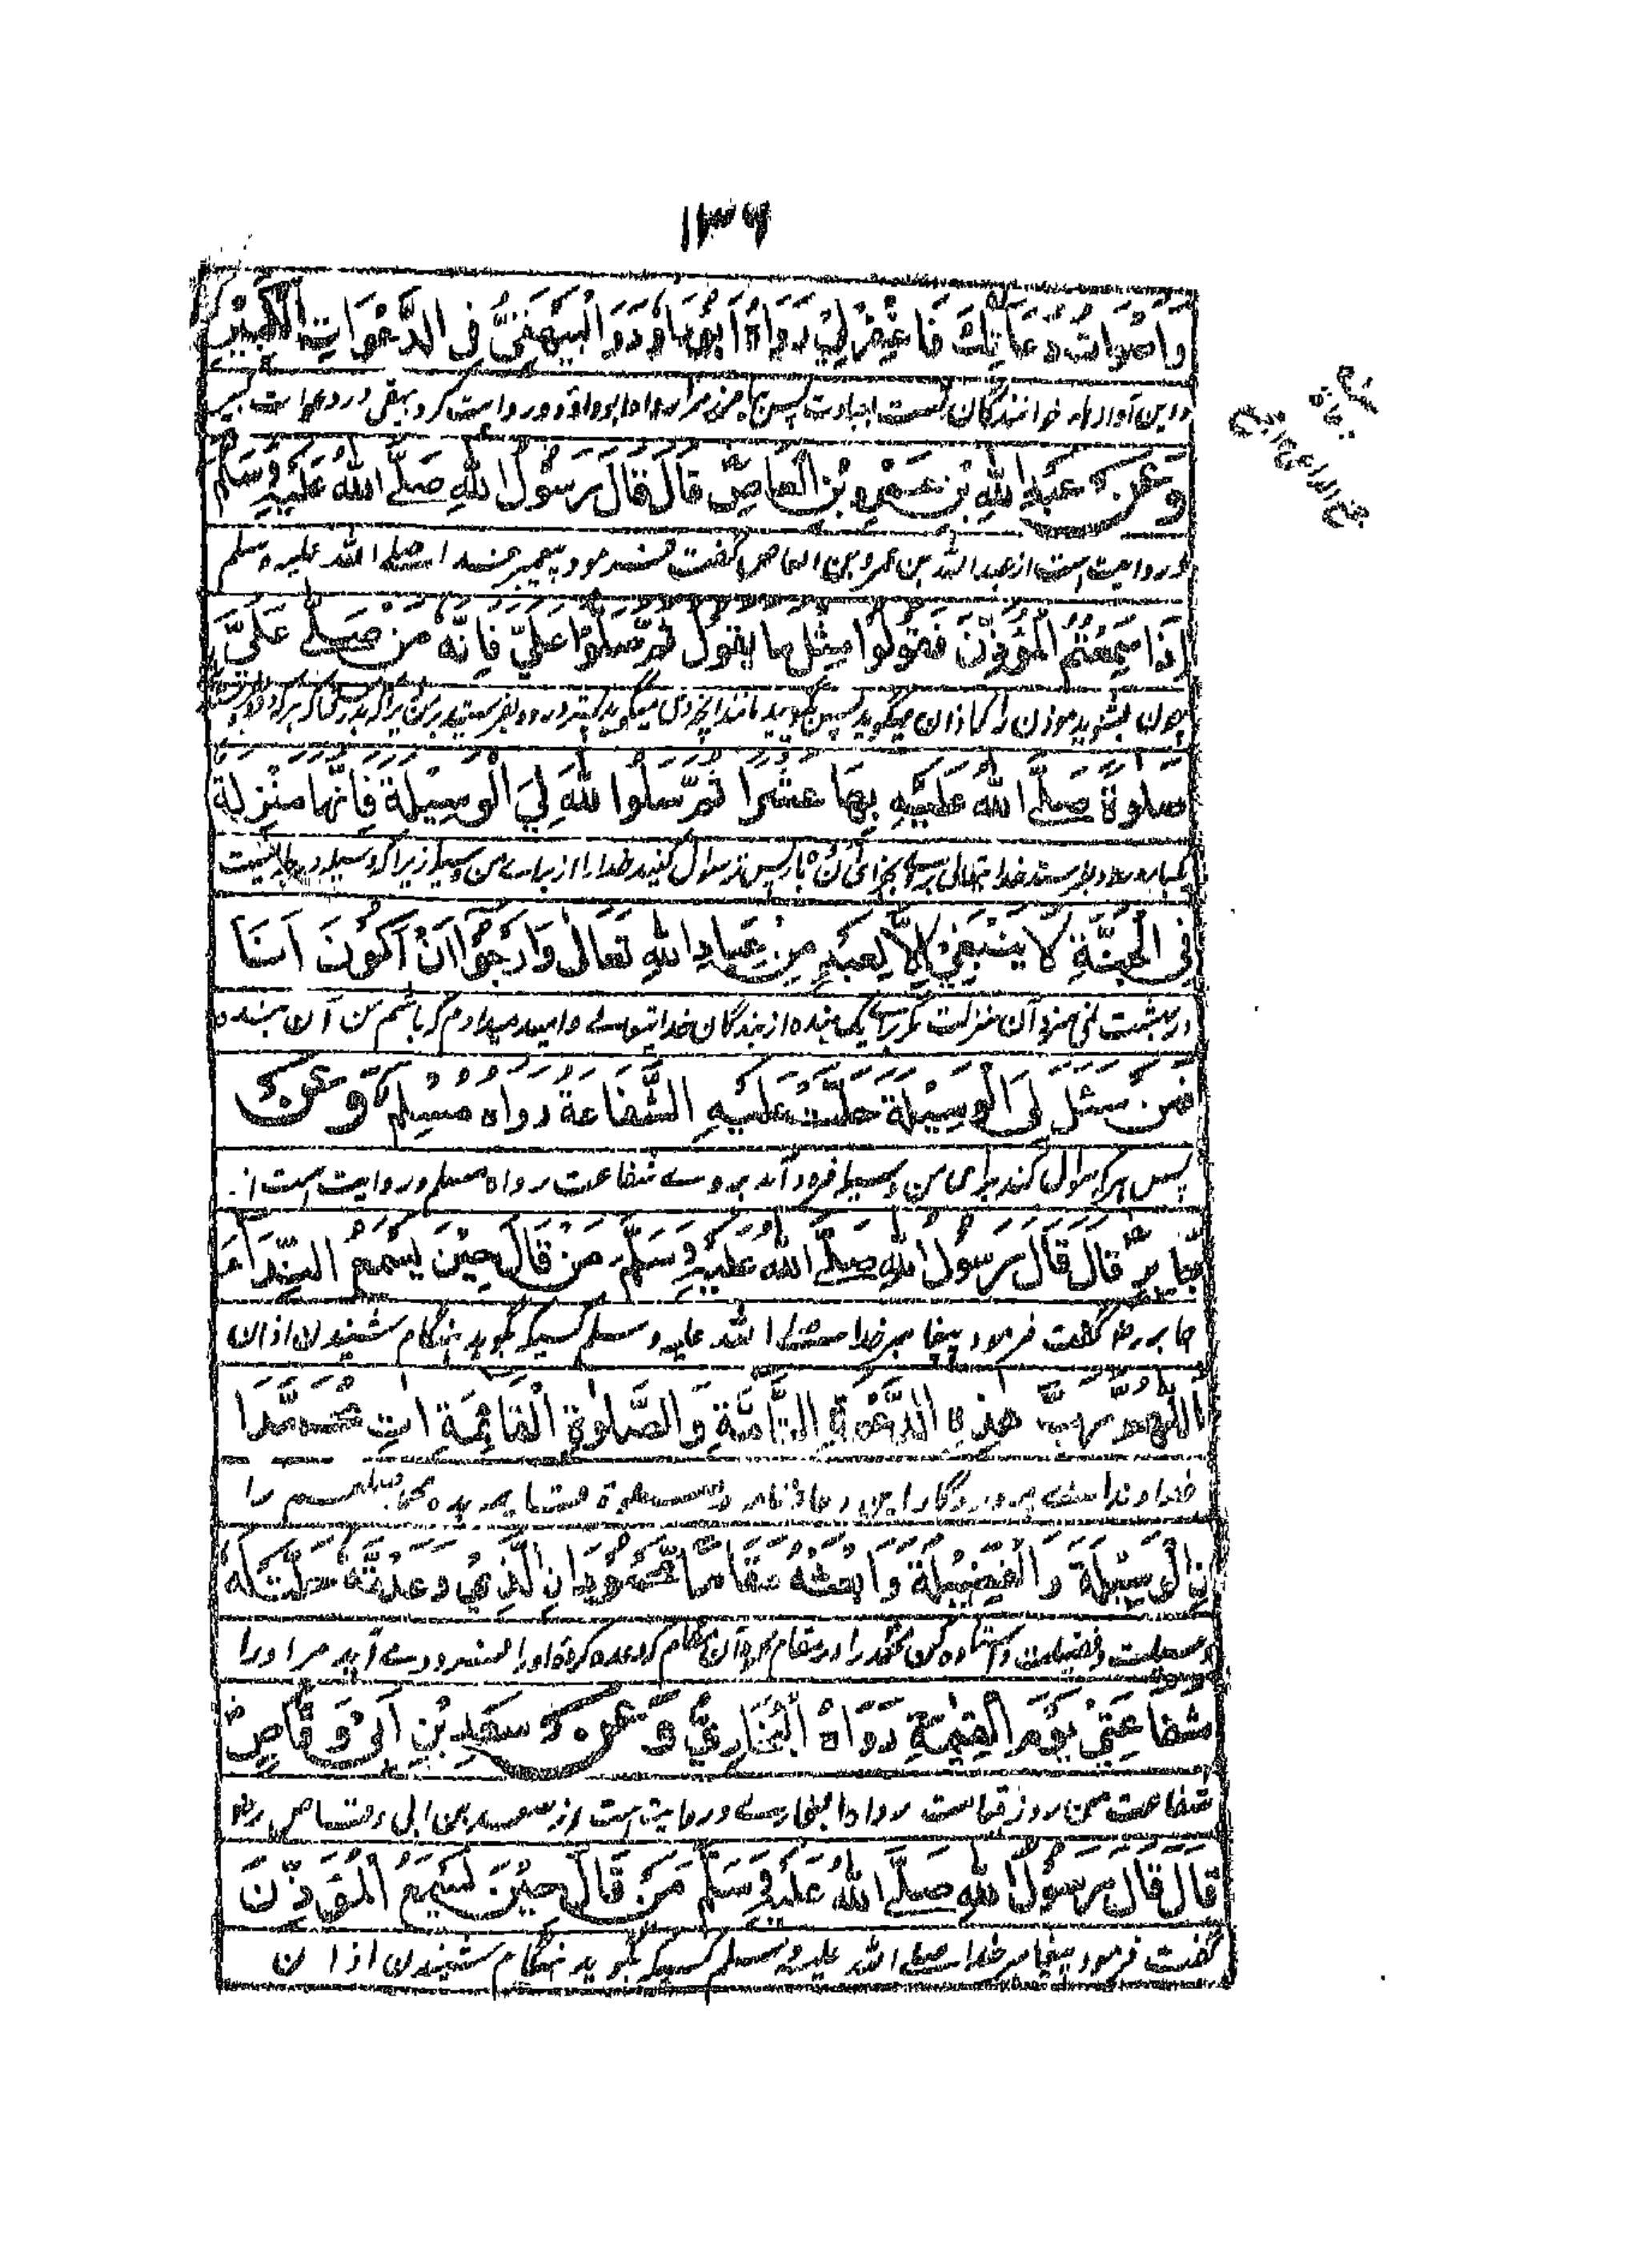 ١٣٦
وَاَصْوَاتُ دُعَاتِكَ فَاغْفِرْ لِيْ رَوَاهُ اَبُوْدَاوٗدَ وَالْبَيْهَقِيُّ فِي الدَّعْوَاتِ الْكَبِيْرِ
واین آواز خوانندگان تست بعبادت پس بیامرز مرا رواه ابوداؤد وروایت کرد بیهقی در دعوات کبیر
وَعَنْ عَبْدِ اللّٰهِ بْنِ عَمْرِو بْنِ الْعَاصِ قَالَ قَالَ رَسُوْلُ اللّٰهِ صَلَّى اللّٰهُ عَلَيْهِ وَسَلَّمَ
وروایت است از عبدالله بن عمرو بن العاص گفت فرمود پیغمبر خدا صلے الله علیه وسلم
اِذَا سَمِعْتُمُ الْمُؤَذِّنَ فَقُوْلُوْا مِثْلَ مَا يَقُوْلُ ثُمَّ صَلُّوْا عَلَيَّ فَاِنَّهٗ مَنْ صَلّٰے عَلَيَّ
چون بشنوید موذن را که اذان میگوید پس بگویید مانند آنچه وی میگوید پستر درود بفرستید بر من زیرا که بدرستی که هر که درود
صَلٰوةً صَلَّى اللّٰهُ عَلَيْهِ بِهَا عَشْرًا ثُمَّ سَلُوا اللّٰهَ لِيَ الْوَسِيْلَةَ فَاِنَّهَا مَنْزِلَةٌ
یکبار درود فرستد خدا تعالی بر وے بجزای آن ده بار پس تر سوال کنید خدا را از براے من وسیله زیرا که وسیله
فِي الْجَنَّةِ لَا يَنْبَغِيْ اِلَّا لِعَبْدٍ مِنْ عِبَادِ اللّٰهِ تَعَالٰى وَاَرْجُوْا اَنْ اَكُوْنَ اَنَا
در بهشت نمی سزد آن منزلت مگر براے یک بنده از بندگان خدا تعالے وامید میدارم که باشم من آن بنده
فَمَنْ سَئَلَ لِيَ الْوَسِيْلَةَ حَلَّتْ عَلَيْهِ الشَّفَاعَةُ رواه مُسْلِم وَعَنْ
پس هر که سوال کند برای من وسیله فرود آید بر وے شفاعت رواه مسلم وروایت است از
جَابِرٍ قَالَ قَالَ رَسُوْلُ اللّٰهِ صَلَّى اللّٰهُ عَلَيْهِ وَسَلَّمَ مَنْ قَالَ حِيْنَ يَسْمَعُ النِّدَاءَ
جابر رض گفت فرمود پیغامبر خدا صلے الله علیه وسلم کسیکه بگوید هنگام شنیدن اذان
اَللّٰهُمَّ رَبَّ هٰذِهِ الدَّعْوَةِ التَّامَّةِ وَالصَّلٰوةِ الْقَائِمَةِ اٰتِ مُحَمَّدَا
خداوندا اے پروردگار این دعاء تامه وصلوة قائمه بده محمد صلعم را
نِ الْوَسِيْلَةَ وَالْفَضِيْلَةَ وَابْعَثْهُ مَقَامًا مَّحْمُوْدَا نِ الَّذِيْ وَعَدْتَّهٗ حَلَّتْ لَهٗ
وسیلت وفضیلت واستاده کن محمد را در مقام محمود آن مقام که وعده کرده اورا فرود مے آید مر اورا
شَفَاعَتِيْ يَوْمَ الْقِيٰمَةِ رَوَاهُ الْبُخَارِيُّ وَعَنْ سَعْدِ بْنِ اَبِيْ وَقَّاصٍ
شفاعت من روز قیامت رواه البخارے وروایت است از سعد بن ابی وقاص رض
قَالَ قَالَ رَسُوْلُ اللّٰهِ صَلَّى اللّٰهُ عَلَيْهِ وَسَلَّمَ مَنْ قَالَ حِيْنَ يَسْمَعُ الْمُؤَذِّنَ
گفت فرمود پیغامبر خدا صلے الله علیه وسلم کسیکه بگوید هنگام شنیدن اذان